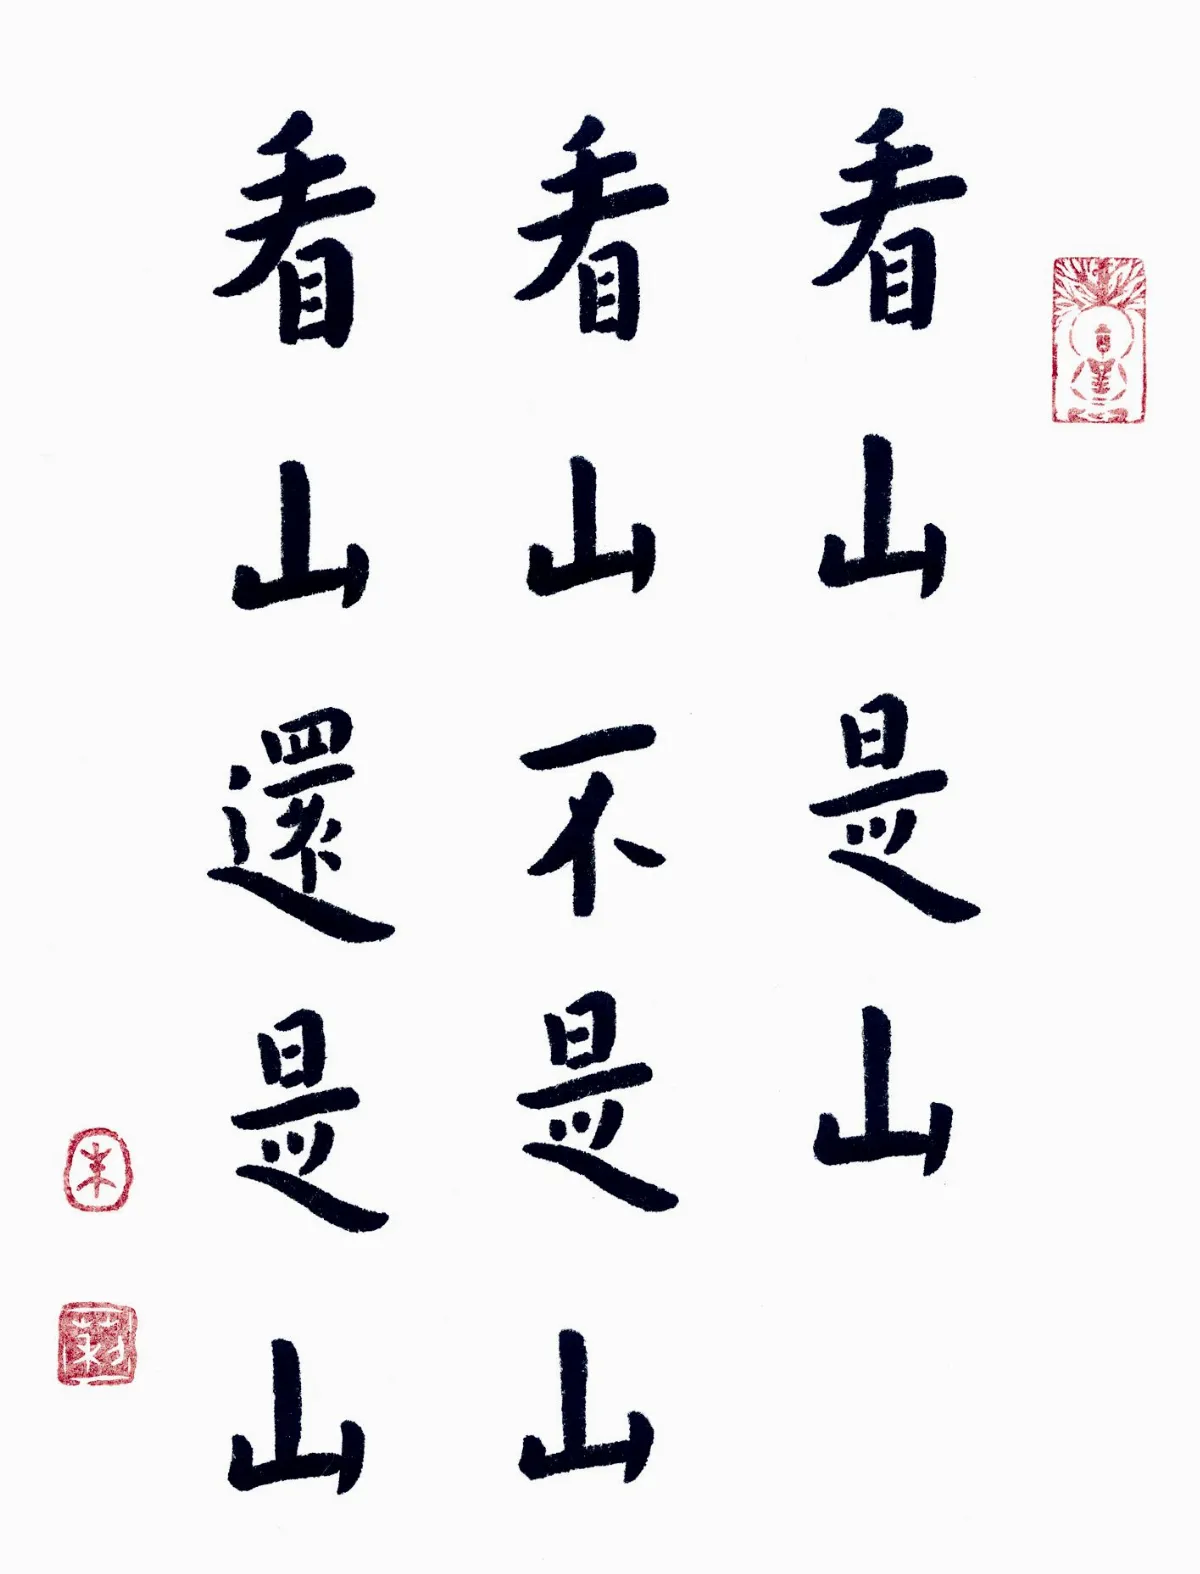 看山是山
看山不是山
看山還是山
朱
莉